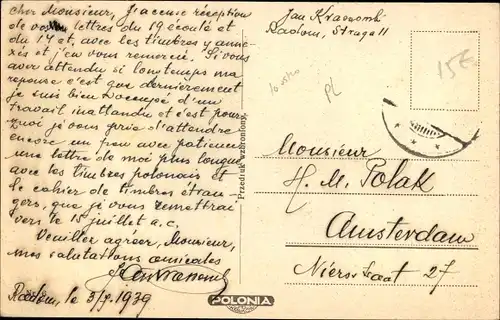 Cher Monsieur, J'accuse réception
de vos lettres du 19 écoulé et
du 17 et, avec les timbres y anne-
xés et j'en vous remercie. Si vous
avez attendu si longtemps ma
reponse c'est que dernièrement
je suis bien occupé d'un
travail inattendu et c'est pour-
quoi je vous prie d'attendre
encore un peu avec patience
une lettre de moi plus longue
avec les timbres polonais et
le cahier de timbres étran-
gers, que je vous remettrai
vers le 15 juillet a.c.
Veuillez agréer, Monsieur,
mes salutations amicales
Radom, le 3/7. 1939
Przedruk wzbroniony.
POLONIA
Jan
Radom,
15€
PL
Monsieur
H. M. Polak
Amsterdam
27